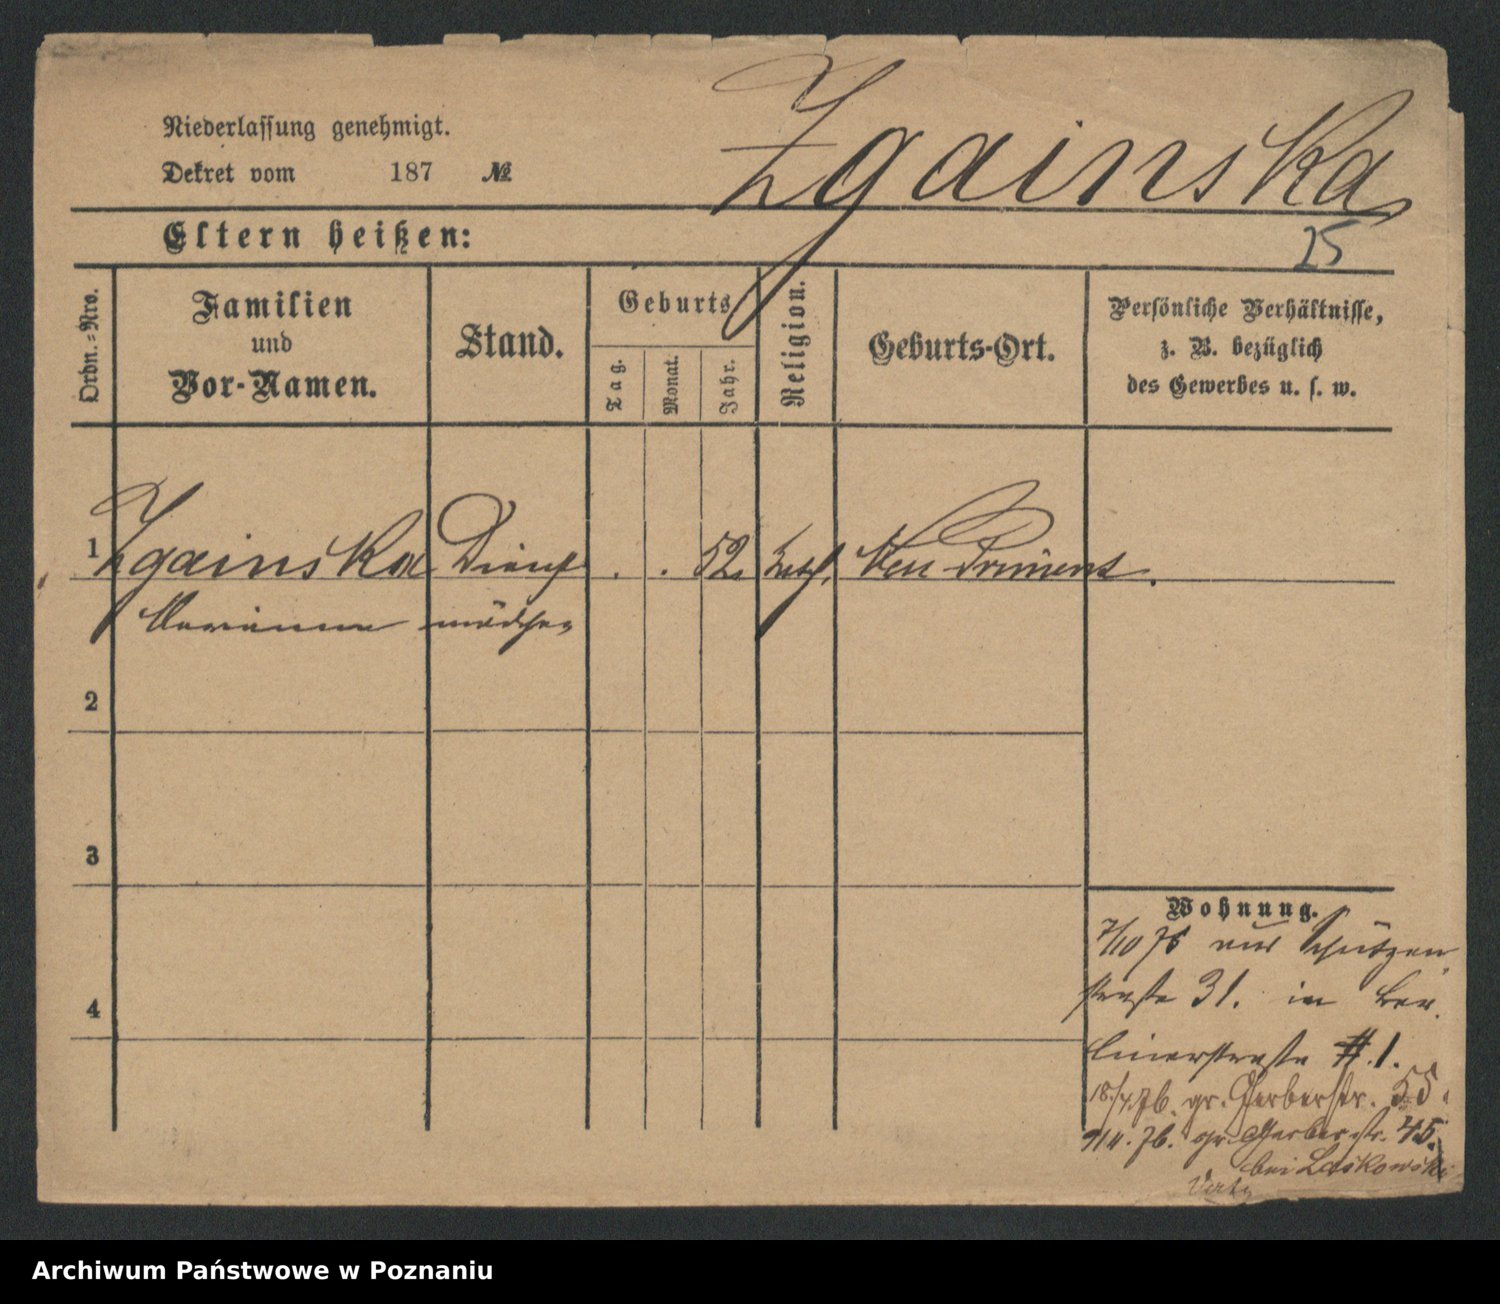 Niederlassung genehmigt.
Dekret vom 187 №
Zgainska
Eltern heißen:
25
Ordn.-Nro.
Familien
und
Vor-Namen.
Stand.
Geburts
Tag.
Monat.
Jahr.
Religion.
Geburts-Ort.
Persönliche Verhältnisse,
z. B. bezüglich
des Gewerbes u. s. w.
1 Zgainska Dienst . . 52. kath. Neu Priment.
Marianna mädchen
2
3
4
Wohnung.
7/10 75 aus Schützen
straße 31. in Ber.
linerstraße 1.
18/4. 76. gr. Gerberstr. 55.
9/11. 76. gr. Gerberstr. 45.
bei Laskowski
Archiwum Państwowe w Poznaniu